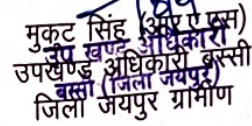 मुकुट सिंह (आर ए एस)
उप खण्ड अधिकारी
उपखण्ड अधिकारी बस्सी
बस्सी (जिला जयपुर)
जिला जयपुर ग्रामीण